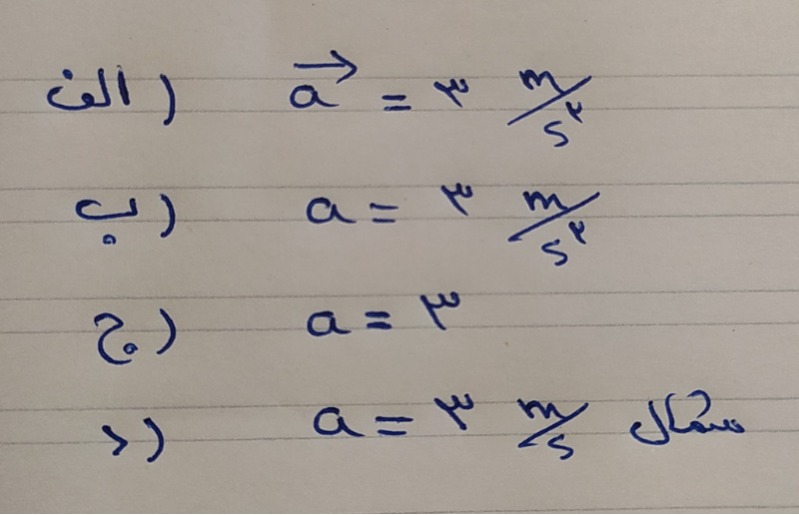 الف) a⃗ = ۳ m/s²
ب) a = ۳ m/s²
ج) a = ۳
د) a = ۳ m/s شمال